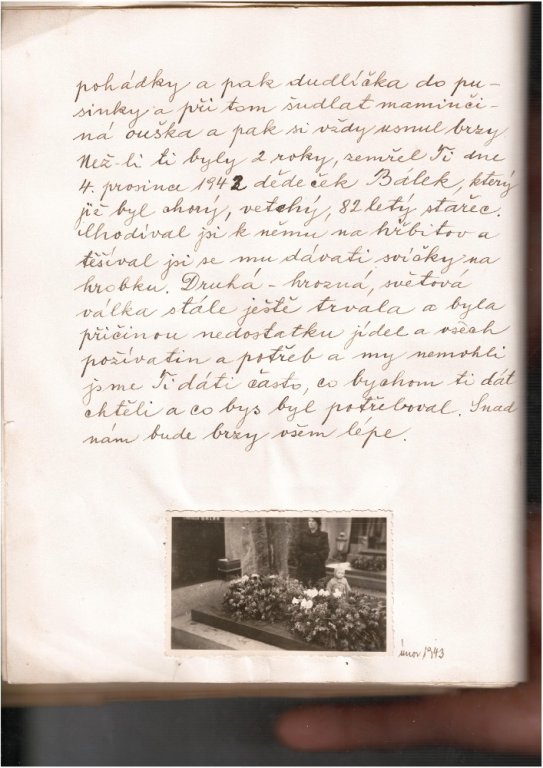 pohádky a pak dudlíčka do pu-
sinky a při tom sudlat maminči-
ná ouška a pak si vždy usnul brzy
Než-li ti byly 2 roky, zemřel Ti dne
4. prosince 1942 dědeček Bálek, který
již byl chorý, vetchý, 82 letý stařec.
Chodíval jsi k němu na hřbitov a
těšíval jsi se mu dávati svíčky na
hrobku. Druhá - hrozná, světová
válka stále ještě trvala a byla
příčinou nedostatku jídel a všech
požívatin a potřeb a my nemohli
jsme Ti dáti často, co bychom ti dát
chtěli a co bys byl potřeboval. Snad
nám bude brzy všem lépe.
únor 1943